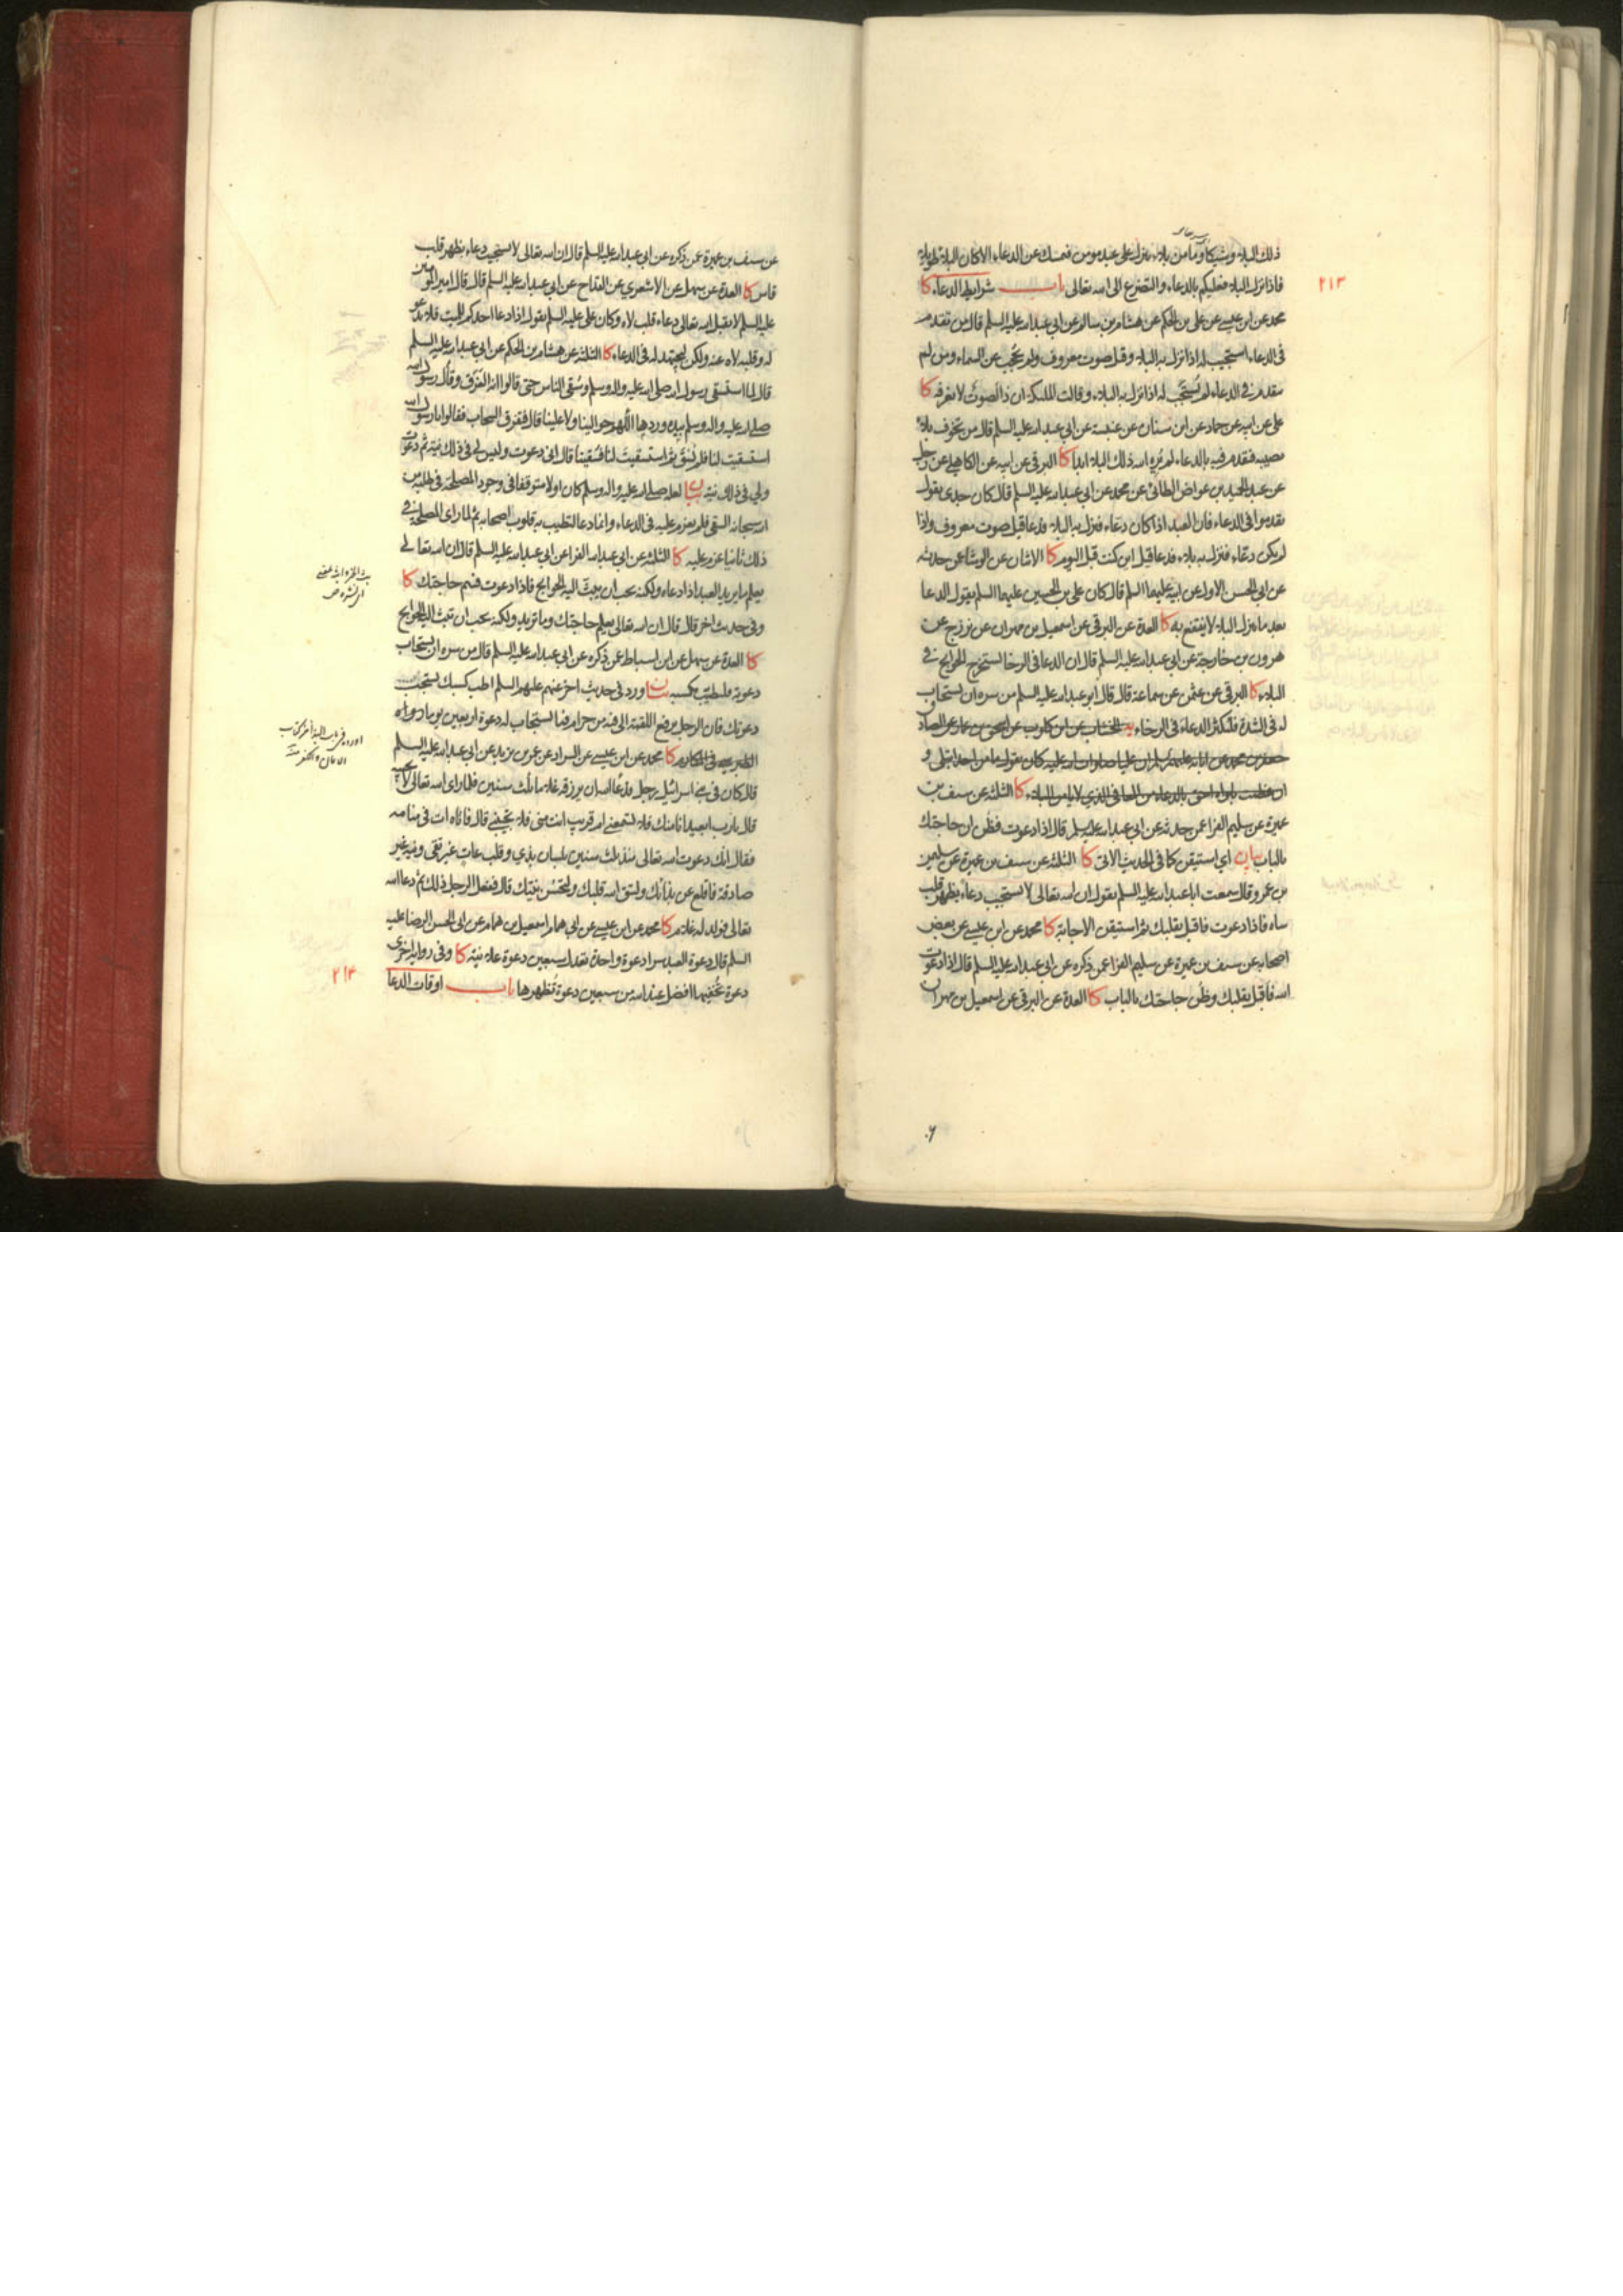 ذلك البلاء وشيكا وما من بلاء ينزل على عبد مومن فيمسك عن الدعاء الا كان البلاء طويلا
٢١٣
فاذا نزل البلاء فعليكم بالدعاء والتضرع الى الله تعالى باب شرايط الدعاء كا
محمد عن ابن عيسى عن على بن الحكم عن هشام بن سالم عن ابي عبد الله عليه السلم قال من تقدم
فى الدعاء استجيب له اذا نزل به البلاء وقيل صوت معروف ولم يحجب عن السماء ومن لم
يتقدم في الدعاء لم يستجب له اذا نزل به البلاء وقالت الملئكة ان ذا الصوت لا نعرفه كا
على عن ابيه عن حماد عن ابن سنان عن عنبسة عن ابي عبد الله عليه السلم قال من تخوف بلاء
يصيبه فتقدم فيه بالدعاء لم يره الله ذلك البلاء ابدا كا البرقي عن ابيه عن الكاهلي عن رجل
عن عبد الحميد بن عواض الطائى عن محمد عن ابي عبد الله عليه السلم قال كان جدى يقول
تقدموا فى الدعاء فان العبد اذا كان دعاء فنزل به البلاء فدعا قيل صوت معروف واذا
لم يكن دعاء فنزل به بلاء فدعا قيل اين كنت قبل اليوم كا الاثنان عن الوشا عمن حدثه
عن ابي الحسن الاول عن ابيه عليهما السلم قال كان على بن الحسين عليهما السلم يقول الدعا
بعد ما ينزل البلاء لا ينتفع به كا العدة عن البرقي عن اسمعيل بن مهران عن بزرج عن
هرون بن خارجة عن ابي عبد الله عليه السلم قال ان الدعا فى الرخا يستخرج الحوايج في
البلاء كا البرقي عن عثمن عن سماعة قال قال ابو عبد الله عليه السلم من سره ان يستجاب
له فى الشدة فليكثر الدعاء فى الرخاء يه الخشاب عن ابن كلوب عن اسحق بن عمار عن الصادق
جعفر بن محمد عن ابائه عليهم السلم ان عليا صلوات الله عليه كان يقول ما من احد ابتلى و
ان عظمت بلواه احق بالدعاء من المعافى الذي لا يامن البلاء كا الثلثة عن سيف بن
عميرة عن سليم الفرا عمن حدثه عن ابي عبد الله عليه السلم قال اذا دعوت فظن ان حاجتك
بالباب بيان اي استيقن كما فى الحديث الاتى كا الثلثة عن سيف بن عميرة عن سليمن
بن عمرو قال سمعت ابا عبد الله عليه السلم يقول ان الله تعالى لا يستجيب دعاء بظهر قلب
ساه فاذا دعوت فاقبل بقلبك ثم استيقن الاجابة كا محمد عن ابن عيسى عن بعض
اصحابه عن سيف بن عميرة عن سليم الفرا عمن ذكره عن ابي عبد الله عليه السلم قال اذا دعوت
الله فاقبل بقلبك وظن حاجتك بالباب كا العدة عن البرقى عن اسمعيل بن مهران
عن سيف بن عميرة عمن ذكره عن ابي عبد الله عليه السلم قال ان الله تعالى لا يستجيب دعاء بظهر قلب
قاس كا العدة عن سهل عن الاشعري عن القداح عن ابي عبد الله عليه السلم قال قال امير المومنين
عليه السلم لا يقبل الله تعالى دعاء قلب لاه وكان على عليه السلم يقول اذا دعا احدكم للميت فلا يدعو
له وقلبه لاه عنه ولكن ليجتهد له فى الدعاء كا الثلثة عن هشام بن الحكم عن ابي عبد الله عليه السلم
قال لما استسقى رسول الله صلى الله عليه واله وسلم وسقى الناس حتى قالوا انه الغرق وقال رسول الله
صلى الله عليه واله وسلم بيده وردها اللهم حوالينا ولا علينا قال فتفرق السحاب فقالوا يا رسول الله
استسقيت لنا فلم نسق ثم استسقيت لنا فسقينا قال انى دعوت وليس لي فى ذلك نية ثم دعوت
ولي فى ذلك نية بيان لعله صلى الله عليه واله وسلم كان اولا متوقفا فى وجود المصلحة فى طلبه من
الله سبحانه السقى فلم يعزم عليه فى الدعاء وانما دعا لتطيب به قلوب اصحابه ثم لما راى المصلحة في
ذلك ثانيا عزم عليه كا الثلثة عن ابي عبد الله الفرا عن ابي عبد الله عليه السلم قال ان الله تعالى
يعلم ما يريد العبد اذا دعاه ولكنه يحب ان يبث اليه الحوايج فاذا دعوت فسم حاجتك كا
وفى حديث اخر قال قال ان الله تعالى يعلم حاجتك وما تريد ولكنه يحب ان تبث اليه الحوايج
كا العدة عن سهل عن ابن اسباط عمن ذكره عن ابي عبد الله عليه السلم قال من سره ان يستجاب
دعوته فليطيب مكسبه بيان ورد في حديث اخر عنهم عليهم السلم اطب كسبك تستجب
دعوتك فان الرجل يرفع اللقمة الى فيه من حرام فما يستجاب له دعوة اربعين يوما رواه
الطبرسي فى المكارم كا محمد عن ابن عيسى عن السراد عن عمر بن يزيد عن ابي عبد الله عليه السلم
قال كان فى بني اسرائيل رجل فدعا الله ان يرزقه غلاما ثلث سنين فلما راى الله تعالى لا يجيبه
قال يا رب ابعيد انا منك فلا تسمعني ام قريب انت منى فلا تجيبني قال فاتاه ات فى منامه
فقال انك دعوت الله تعالى منذ ثلث سنين بلسان بذي وقلب عات غير تقى ونية غير
صادقة فاقلع عن بذائك وليتق الله قلبك ولتحسن نيتك قال ففعل الرجل ذلك ثم دعا الله
تعالى فولد له غلام كا محمد عن ابن عيسى عن ابي همام اسمعيل بن همام عن ابى الحسن الرضا عليه
السلم قال دعوة العبد سرا دعوة واحدة تعدل سبعين دعوة علانية كا وفى رواية اخرى
دعوة تخفيها افضل عند الله من سبعين دعوة تظهرها باب اوقات الدعا
٢١٤